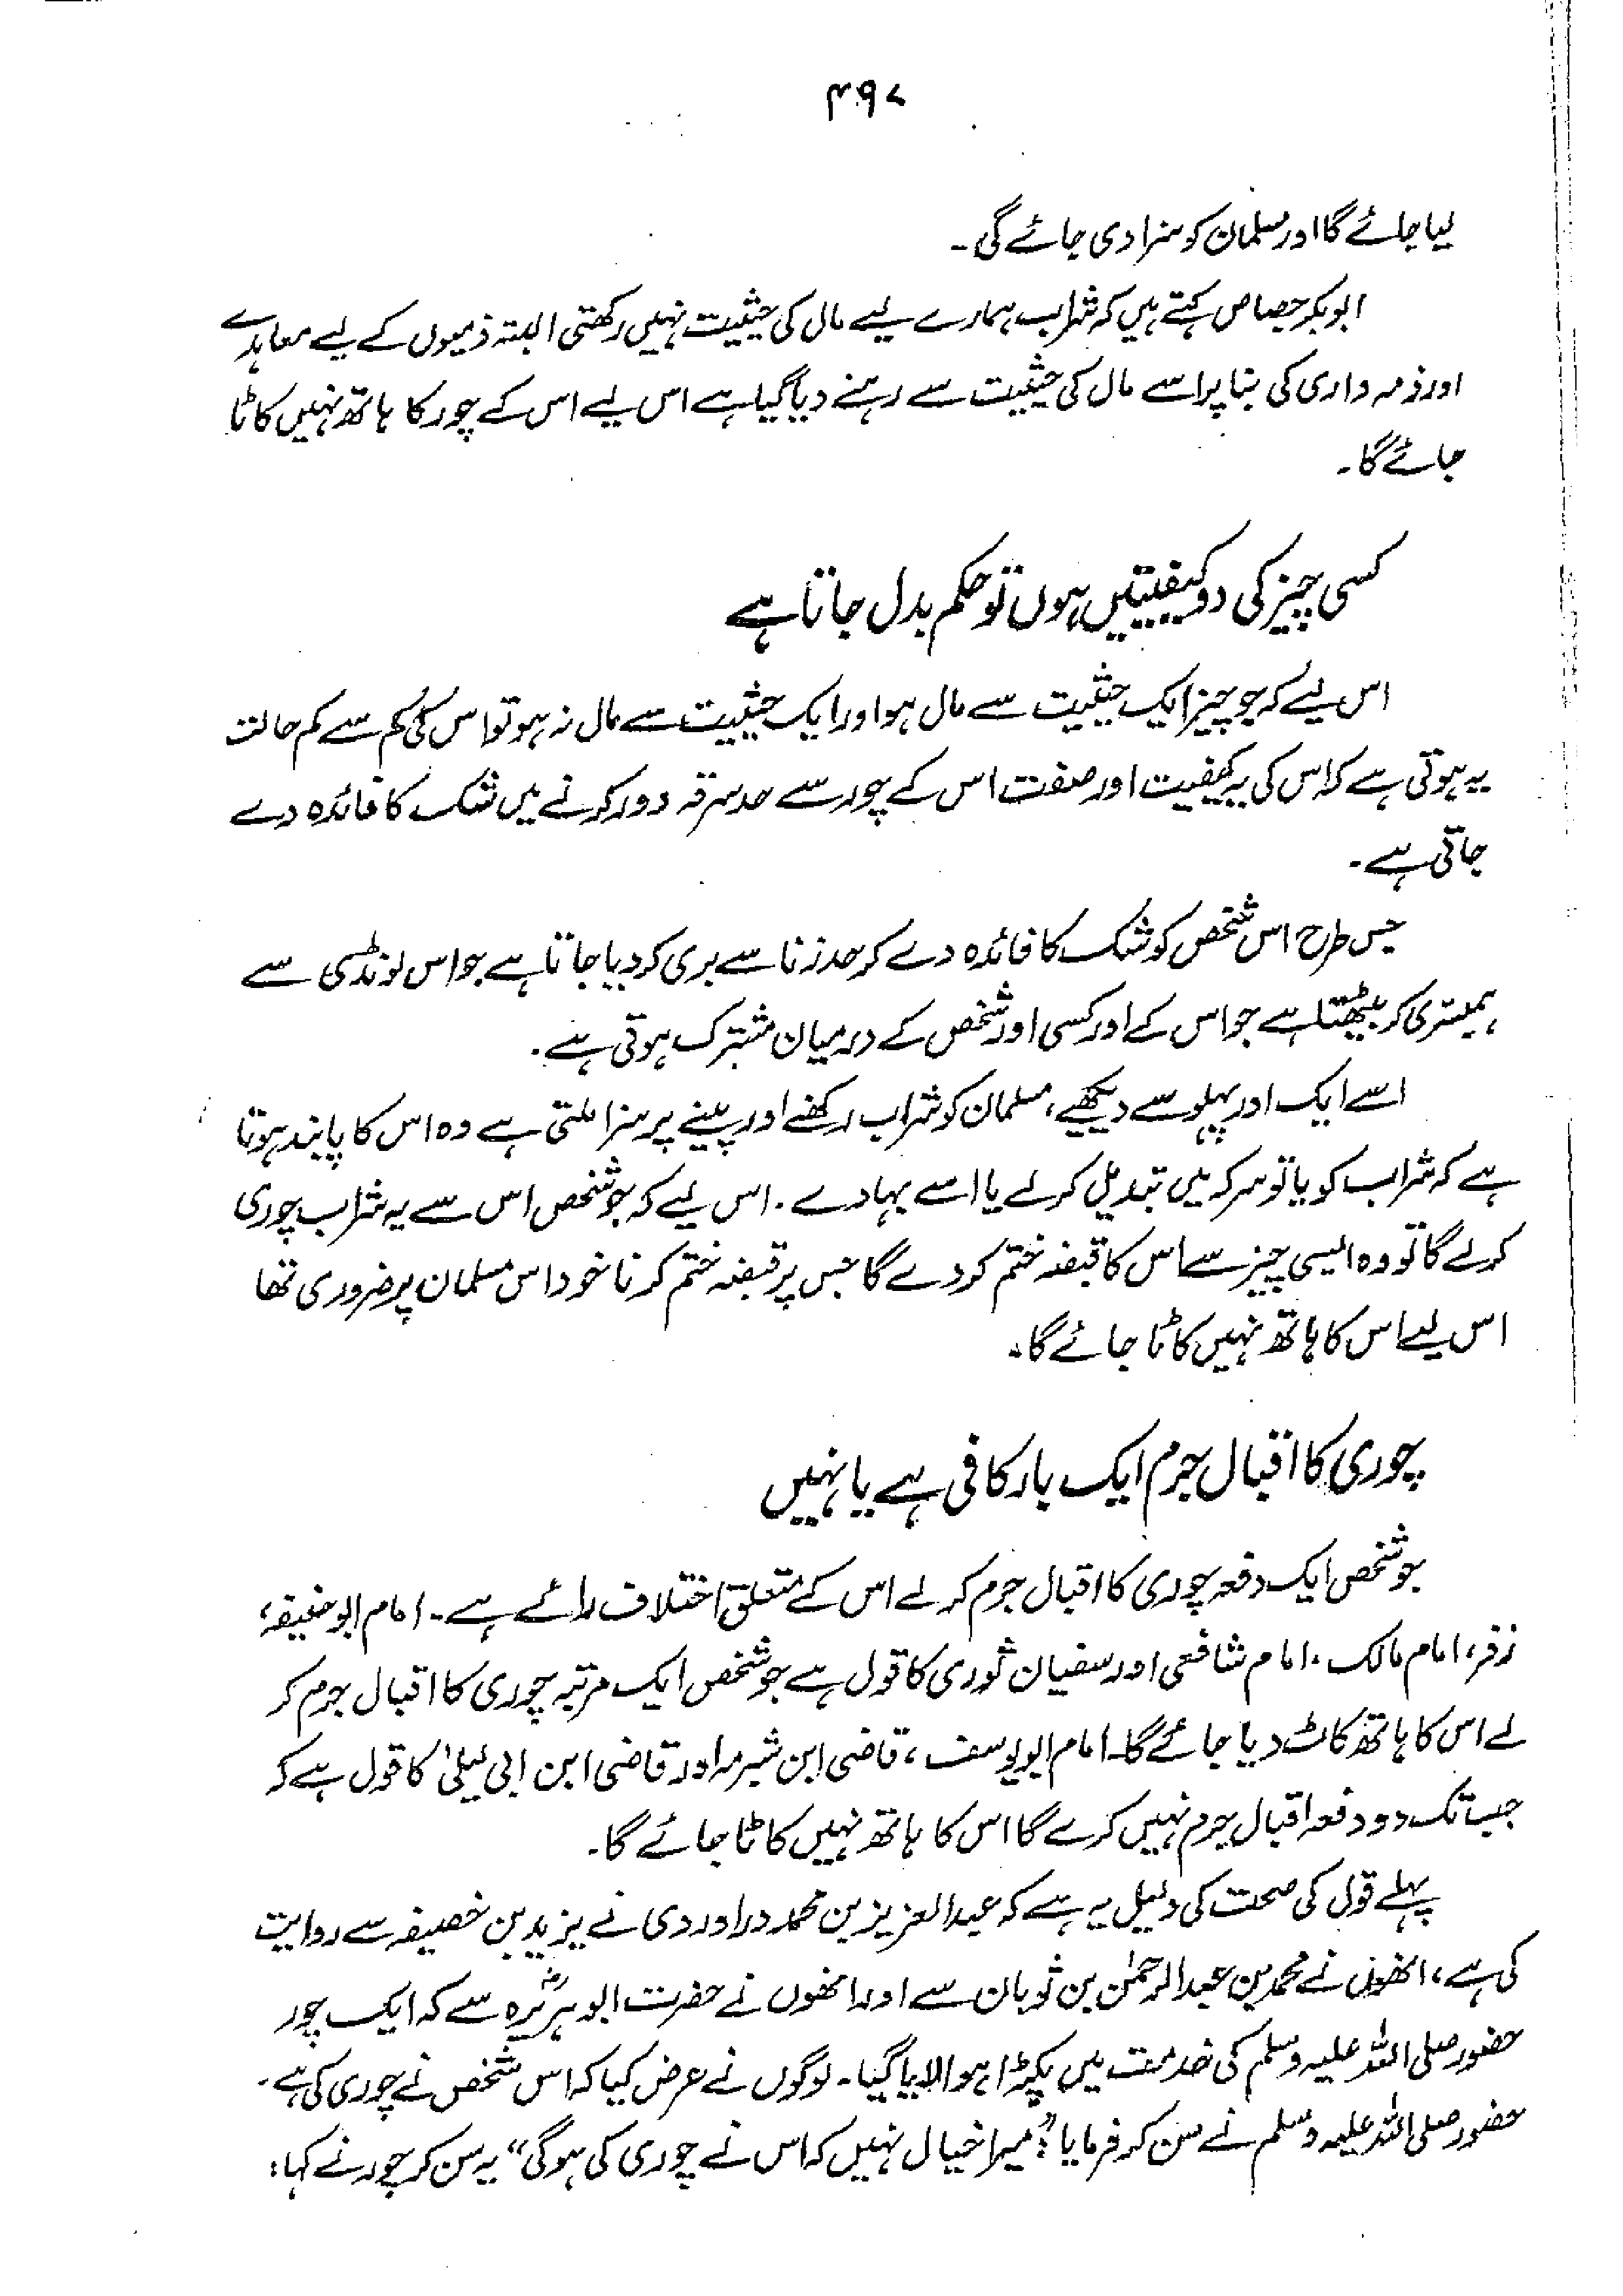 ۴۹۷
لیا جائے گا اور مسلمان کو سزا دی جائے گی۔
ابوبکر جصاص کہتے ہیں کہ شراب ہمارے لیے مال کی حیثیت نہیں رکھتی البتہ ذمیوں کے لیے معاہدے
اور ذمہ داری کی بنا پر اسے مال کی حیثیت سے رہنے دیا گیا ہے اس لیے اس کے چور کا ہاتھ نہیں کاٹا
جائے گا۔
کسی چیز کی دو کیفیتیں ہوں تو حکم بدل جاتا ہے
اس لیے کہ جو چیز ایک حیثیت سے مال ہو اور ایک حیثیت سے مال نہ ہو تو اس کی کم سے کم حالت
یہ ہوتی ہے کہ اس کی یہ کیفیت اور صفت اس کے چور سے حد سرقہ دور کرنے میں شک کا فائدہ دے
جاتی ہے۔
جس طرح اس شخص کو شک کا فائدہ دے کر حد زنا سے بری کر دیا جاتا ہے جو اس لونڈی سے
ہمبستری کر بیٹھتا ہے جو اس کے اور کسی اور شخص کے درمیان مشترک ہوتی ہے۔
اسے ایک اور پہلو سے دیکھیے، مسلمان کو شراب رکھنے اور پینے پر سزا ملتی ہے وہ اس کا پابند ہوتا
ہے کہ شراب کو یا تو سرکہ میں تبدیل کر لے یا اسے بہا دے۔ اس لیے کہ جو شخص اس سے یہ شراب چوری
کرلے گا تو وہ ایسی چیز سے اس کا قبضہ ختم کر دے گا جس پر قبضہ ختم کرنا خود اس مسلمان پر ضروری تھا
اس لیے اس کا ہاتھ نہیں کاٹا جائے گا۔
چوری کا اقبال جرم ایک بار کافی ہے یا نہیں
جو شخص ایک دفعہ چوری کا اقبال جرم کر لے اس کے متعلق اختلاف رائے ہے۔ امام ابوحنیفہ،
زفر، امام مالک، امام شافعی اور سفیان ثوری کا قول ہے جو شخص ایک مرتبہ چوری کا اقبال جرم کر
لے اس کا ہاتھ کاٹ دیا جائے گا۔ امام ابو یوسف، قاضی ابن شبرمہ اور قاضی ابن ابی لیلیٰ کا قول ہے کہ
جب تک دو دفعہ اقبال جرم نہیں کرے گا اس کا ہاتھ نہیں کاٹا جائے گا۔
پہلے قول کی صحت کی دلیل یہ ہے کہ عبدالعزیز بن محمد دراوردی نے یزید بن خصیفہ سے روایت
کی ہے، انھوں نے محمد بن عبدالرحمٰن بن ثوبان سے اور انھوں نے حضرت ابوہریرہؓ سے کہ ایک چور
حضور صلی اللہ علیہ وسلم کی خدمت میں پکڑا ہوا لایا گیا۔ لوگوں نے عرض کیا کہ اس شخص نے چوری کی ہے۔
حضور صلی اللہ علیہ وسلم نے سن کر فرمایا: ”میرا خیال نہیں کہ اس نے چوری کی ہوگی“ یہ سن کر چور نے کہا: